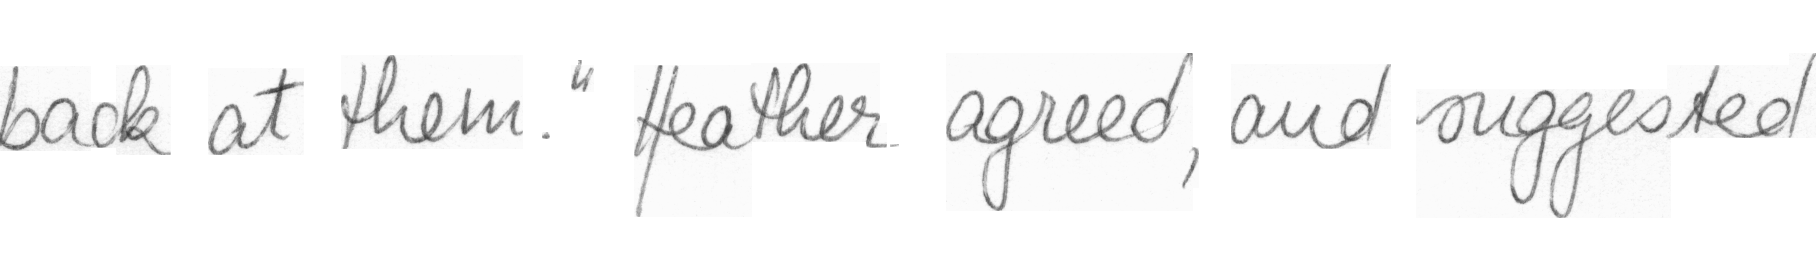 back at them." Heather agreed, and suggested